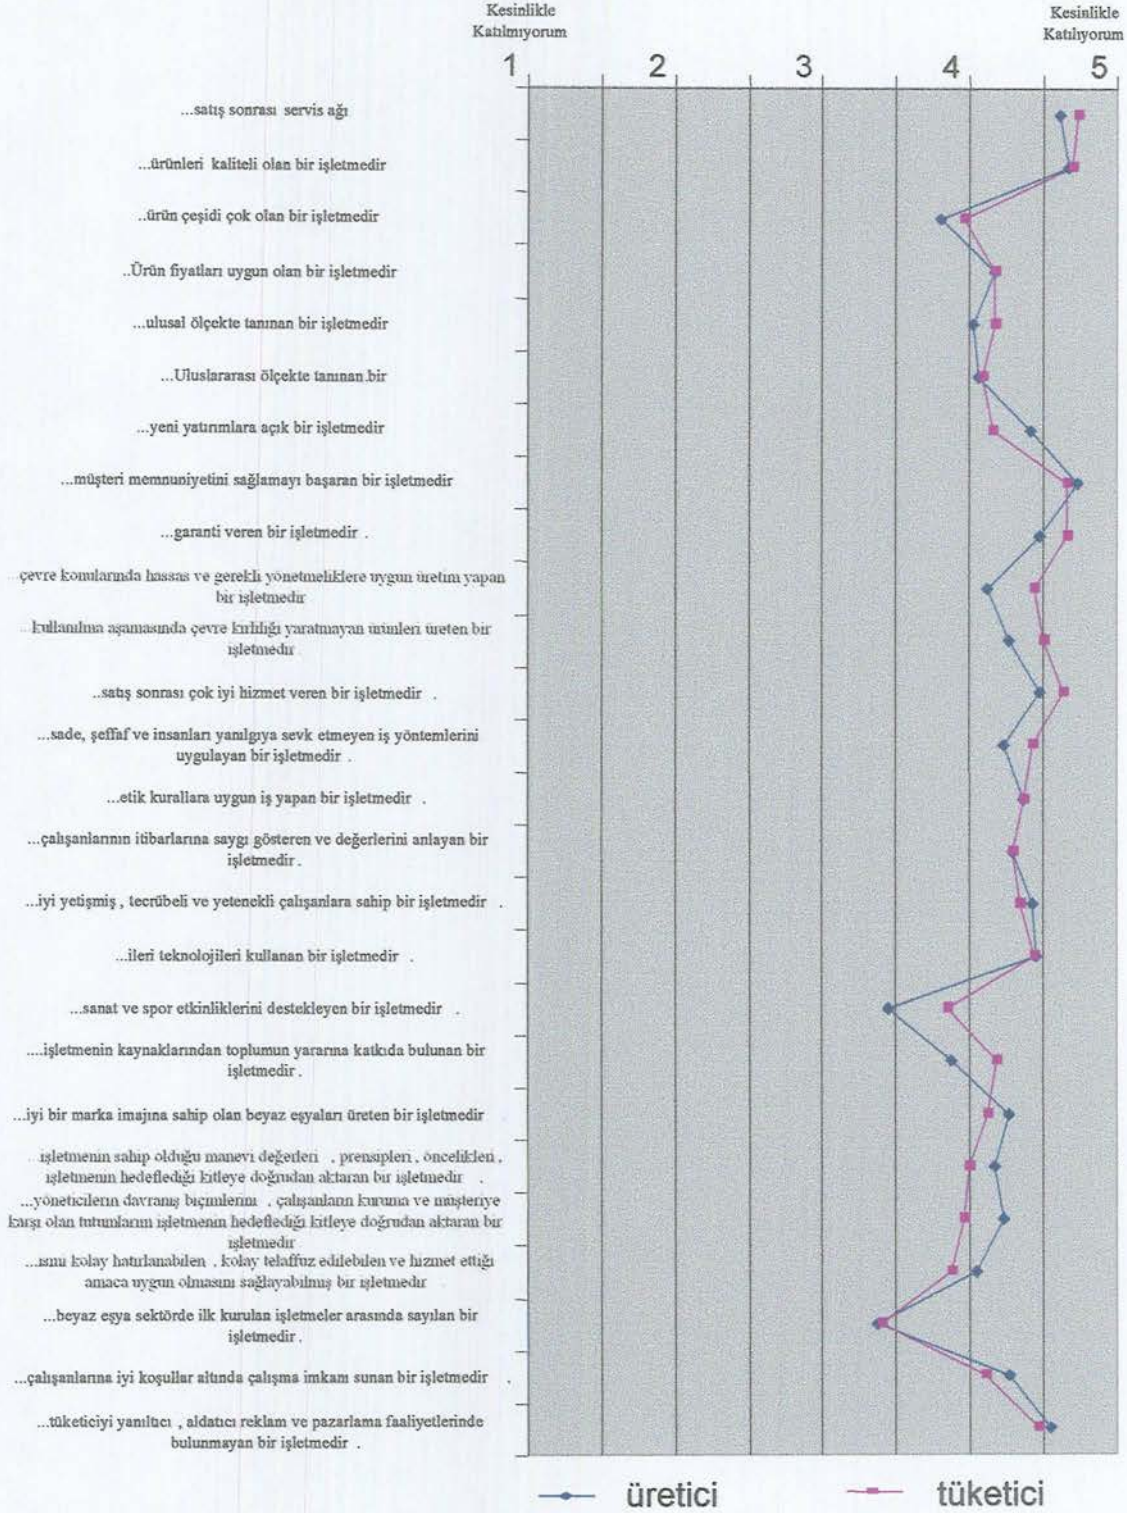 Kesinlikle
Katılmıyorum
Kesinlikle
Katılıyorum
1 2 3 4 5
...satış sonrası servis ağı
...ürünleri kaliteli olan bir işletmedir
..ürün çeşidi çok olan bir işletmedir
..Ürün fiyatları uygun olan bir işletmedir
...ulusal ölçekte tanınan bir işletmedir
...Uluslararası ölçekte tanınan.bir
...yeni yatırımlara açık bir işletmedir
...müşteri memnuniyetini sağlamayı başaran bir işletmedir
...garanti veren bir işletmedir .
çevre konularında hassas ve gerekli yönetmeliklere uygun üretim yapan
bir işletmedir
kullanılma aşamasında çevre kirliliği yaratmayan ürünleri üreten bir
işletmedir
..satış sonrası çok iyi hizmet veren bir işletmedir .
...sade, şeffaf ve insanları yanılgıya sevk etmeyen iş yöntemlerini
uygulayan bir işletmedir .
...etik kurallara uygun iş yapan bir işletmedir .
...çalışanlarının itibarlarına saygı gösteren ve değerlerini anlayan bir
işletmedir .
...iyi yetişmiş , tecrübeli ve yetenekli çalışanlara sahip bir işletmedir .
...ileri teknolojileri kullanan bir işletmedir .
...sanat ve spor etkinliklerini destekleyen bir işletmedir .
....işletmenin kaynaklarından toplumun yararına katkıda bulunan bir
işletmedir .
...iyi bir marka imajına sahip olan beyaz eşyaları üreten bir işletmedir .
işletmenin sahip olduğu manevi değerleri , prensipleri , öncelikleri ,
işletmenin hedeflediği kitleye doğrudan aktaran bir işletmedir .
...yöneticilerin davranış biçimlerini , çalışanların kuruma ve müşteriye
karşı olan tutumlarını işletmenin hedeflediği kitleye doğrudan aktaran bir
işletmedir
...ismi kolay hatırlanabilen , kolay telaffuz edilebilen ve hizmet ettiği
amaca uygun olmasını sağlayabilmiş bir işletmedir
...beyaz eşya sektörde ilk kurulan işletmeler arasında sayılan bir
işletmedir .
...çalışanlarına iyi koşullar altında çalışma imkanı sunan bir işletmedir .
...tüketiciyi yanıltıcı , aldatıcı reklam ve pazarlama faaliyetlerinde
bulunmayan bir işletmedir .
üretici tüketici